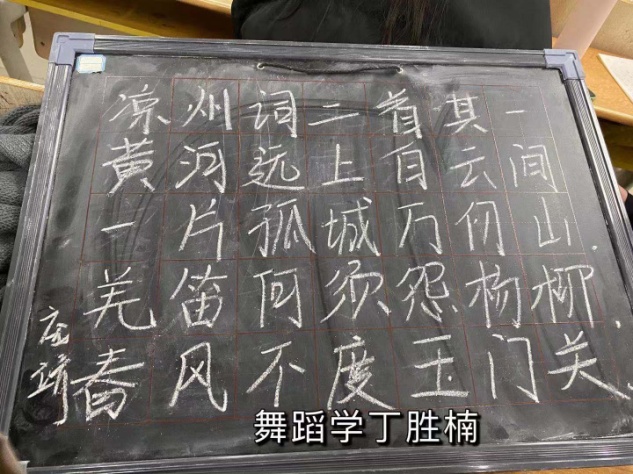 凉州词二首其一
黄河远上白云间
一片孤城万仞山.
羌笛何须怨杨柳.
春风不度玉门关.
舞蹈学丁胜楠